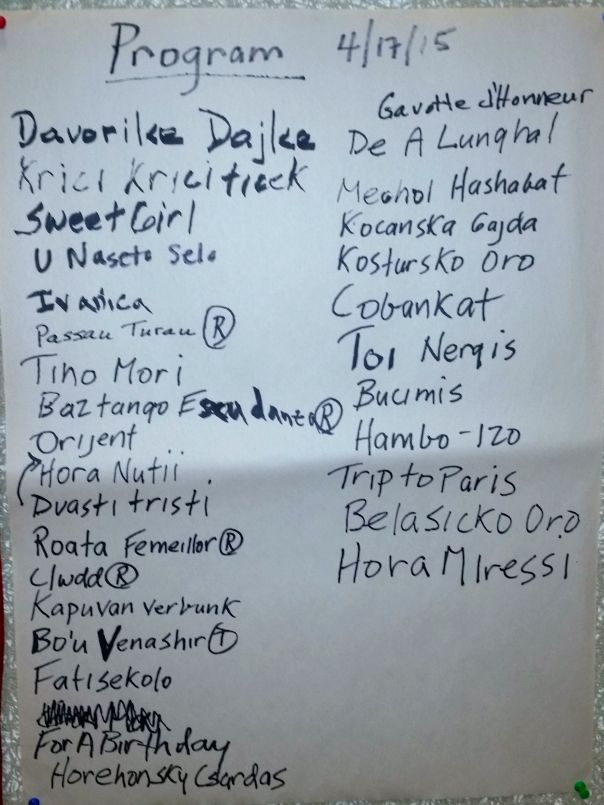 Program 4/17/15
Davorike Dajke
Krici Krici ticek
Sweet Girl
U Naseto Selo
Ivanica
Passau Turau R
Tino Mori
Baztango Esku dantza R
Orijent
Hora Nutii
Dvasti tristi
Roata Femeillor R
Clwdd R
Kapuvari verbunk
Bo'u Venashir T
Fatisekolo
For A Birthday
Horehonsky Csardas
Gavotte d'Honneur
De A Lungnal
Mechol Hashabat
Kocanska Gajda
Kostursko Oro
Cobankat
Toi Nergis
Bucimis
Hambo-120
Trip to Paris
Belasicko Oro
Hora Miressi